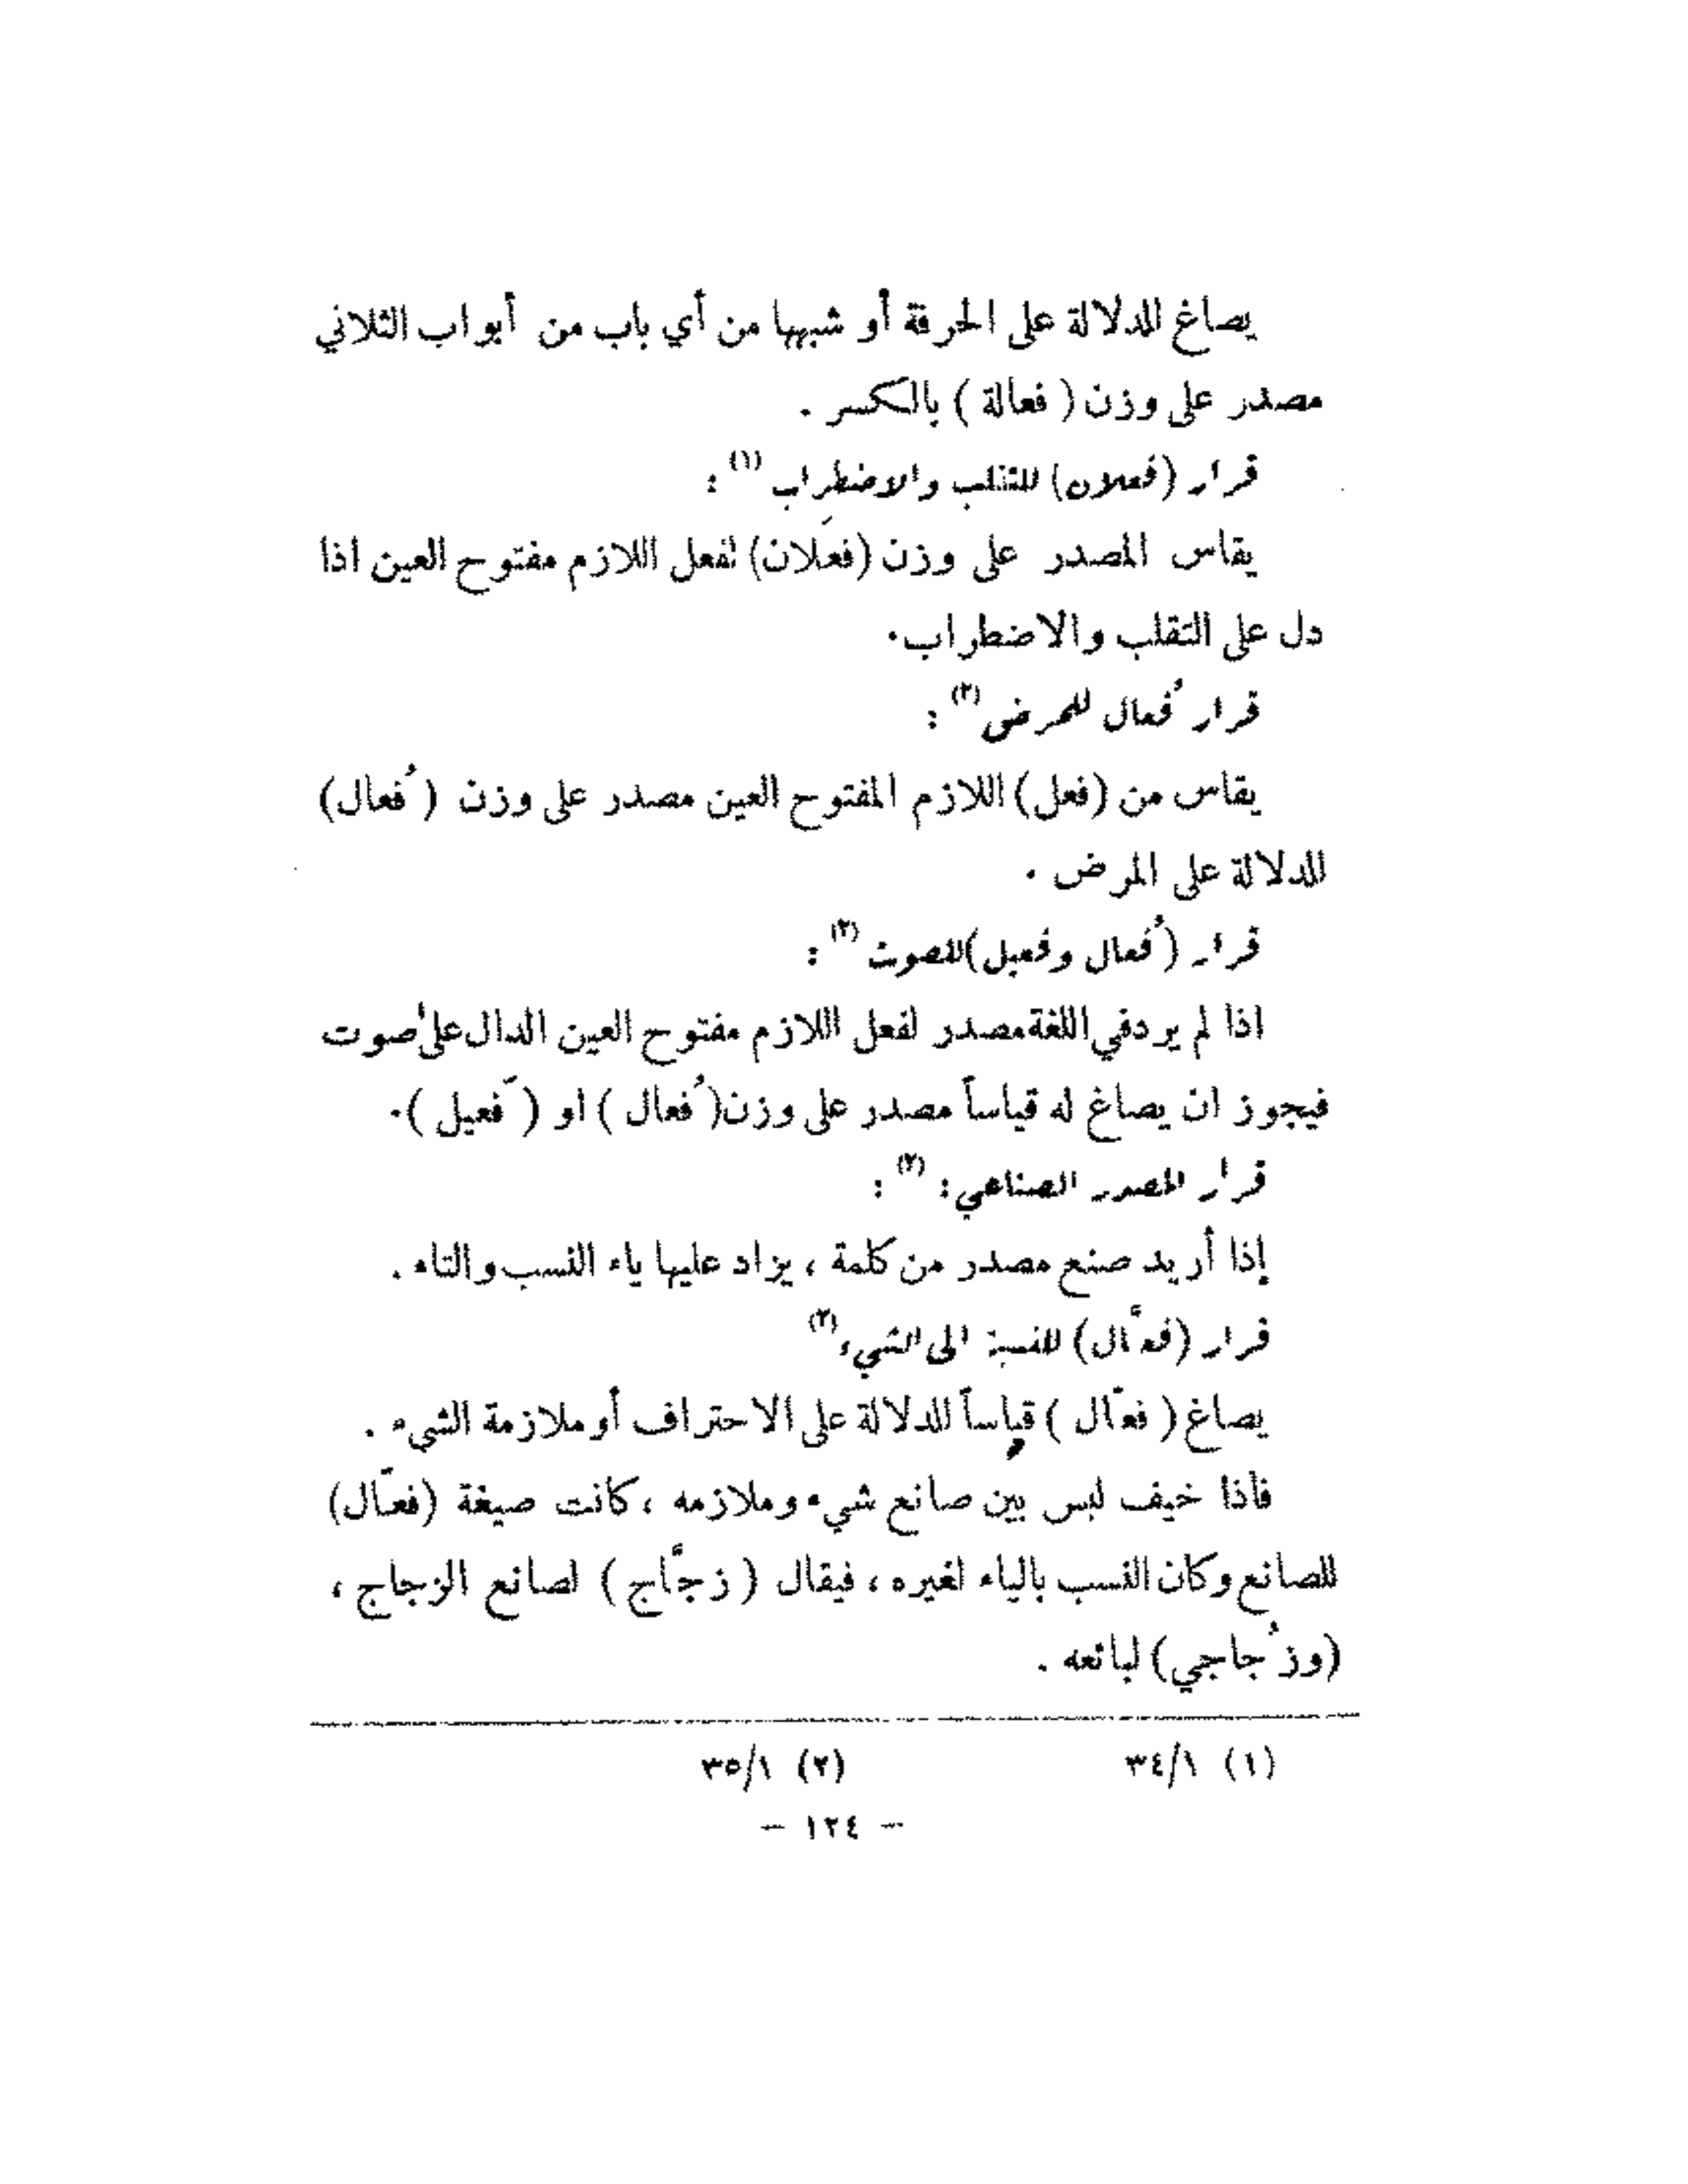 يصاغ للدلالة على الحرفة أو شبهها من أي باب من أبواب الثلاثي
مصدر على وزن ( فعالة ) بالكسر .
قرار (فعلان) للتقلب والاضطراب (١) :
يقاس المصدر على وزن (فعَلان) لفعل اللازم مفتوح العين اذا
دل على التقلب والاضطراب.
قرار فُعال للمرض (٢) :
يقاس من (فعل) اللازم المفتوح العين مصدر على وزن ( فُعال)
للدلالة على المرض .
قرار (فُعال وفعيل)للصوت (٢) :
اذا لم يرد في اللغة مصدر لفعل اللازم مفتوح العين الدال على صوت
فيجوز ان يصاغ له قياساً مصدر على وزن( فُعال ) او ( فَعيل ).
قرار المصدر الصناعي : (٢) :
إذا أريد صنع مصدر من كلمة ، يزاد عليها ياء النسب والتاء .
قرار (فعَّال) للنسبة الى الشيء (٢)
يصاغ ( فعّال ) قياساً للدلالة على الاحتراف أو ملازمة الشيء .
فاذا خيف لبس بين صانع شيء وملازمه ، كانت صيغة (فعّال)
للصانع وكان النسب بالياء لغيره ، فيقال ( زجَّاج ) لصانع الزجاج ،
(وزُجاجي) لبائعه .
(١) ٣٤/١ (٢) ٣٥/١
– ١٢٤ –